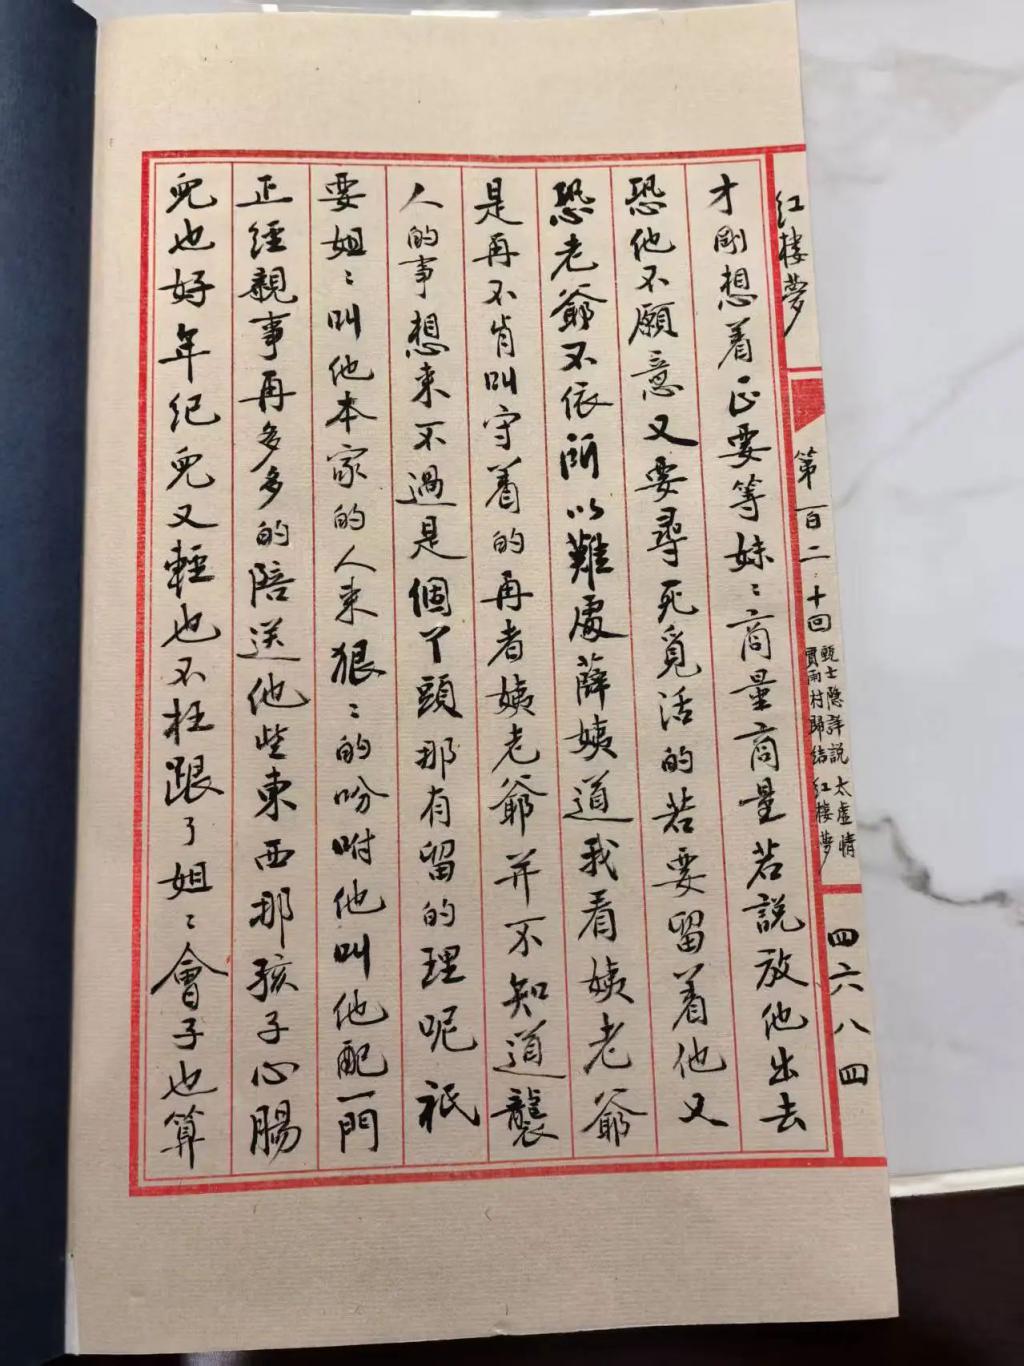 红楼夢
第一百二十回
甄士隐詳説太虚情
賈雨村歸结红楼夢
四六八四
才剛想着正要等妹〻商量商量若説放他出去
恐他不願意又要尋死覓活的若要留着他又
恐老爺不依所以難處薛姨道我看姨老爺
是再不肯叫守着的再者姨老爺并不知道襲
人的事想来不過是個丫頭那有留的理呢祇
要姐〻叫他本家的人来狠〻的吩咐他叫他配一門
正經親事再多多的陪送他些東西那孩子心腸
皃也好年纪皃又輕也不枉跟了姐〻會子也算